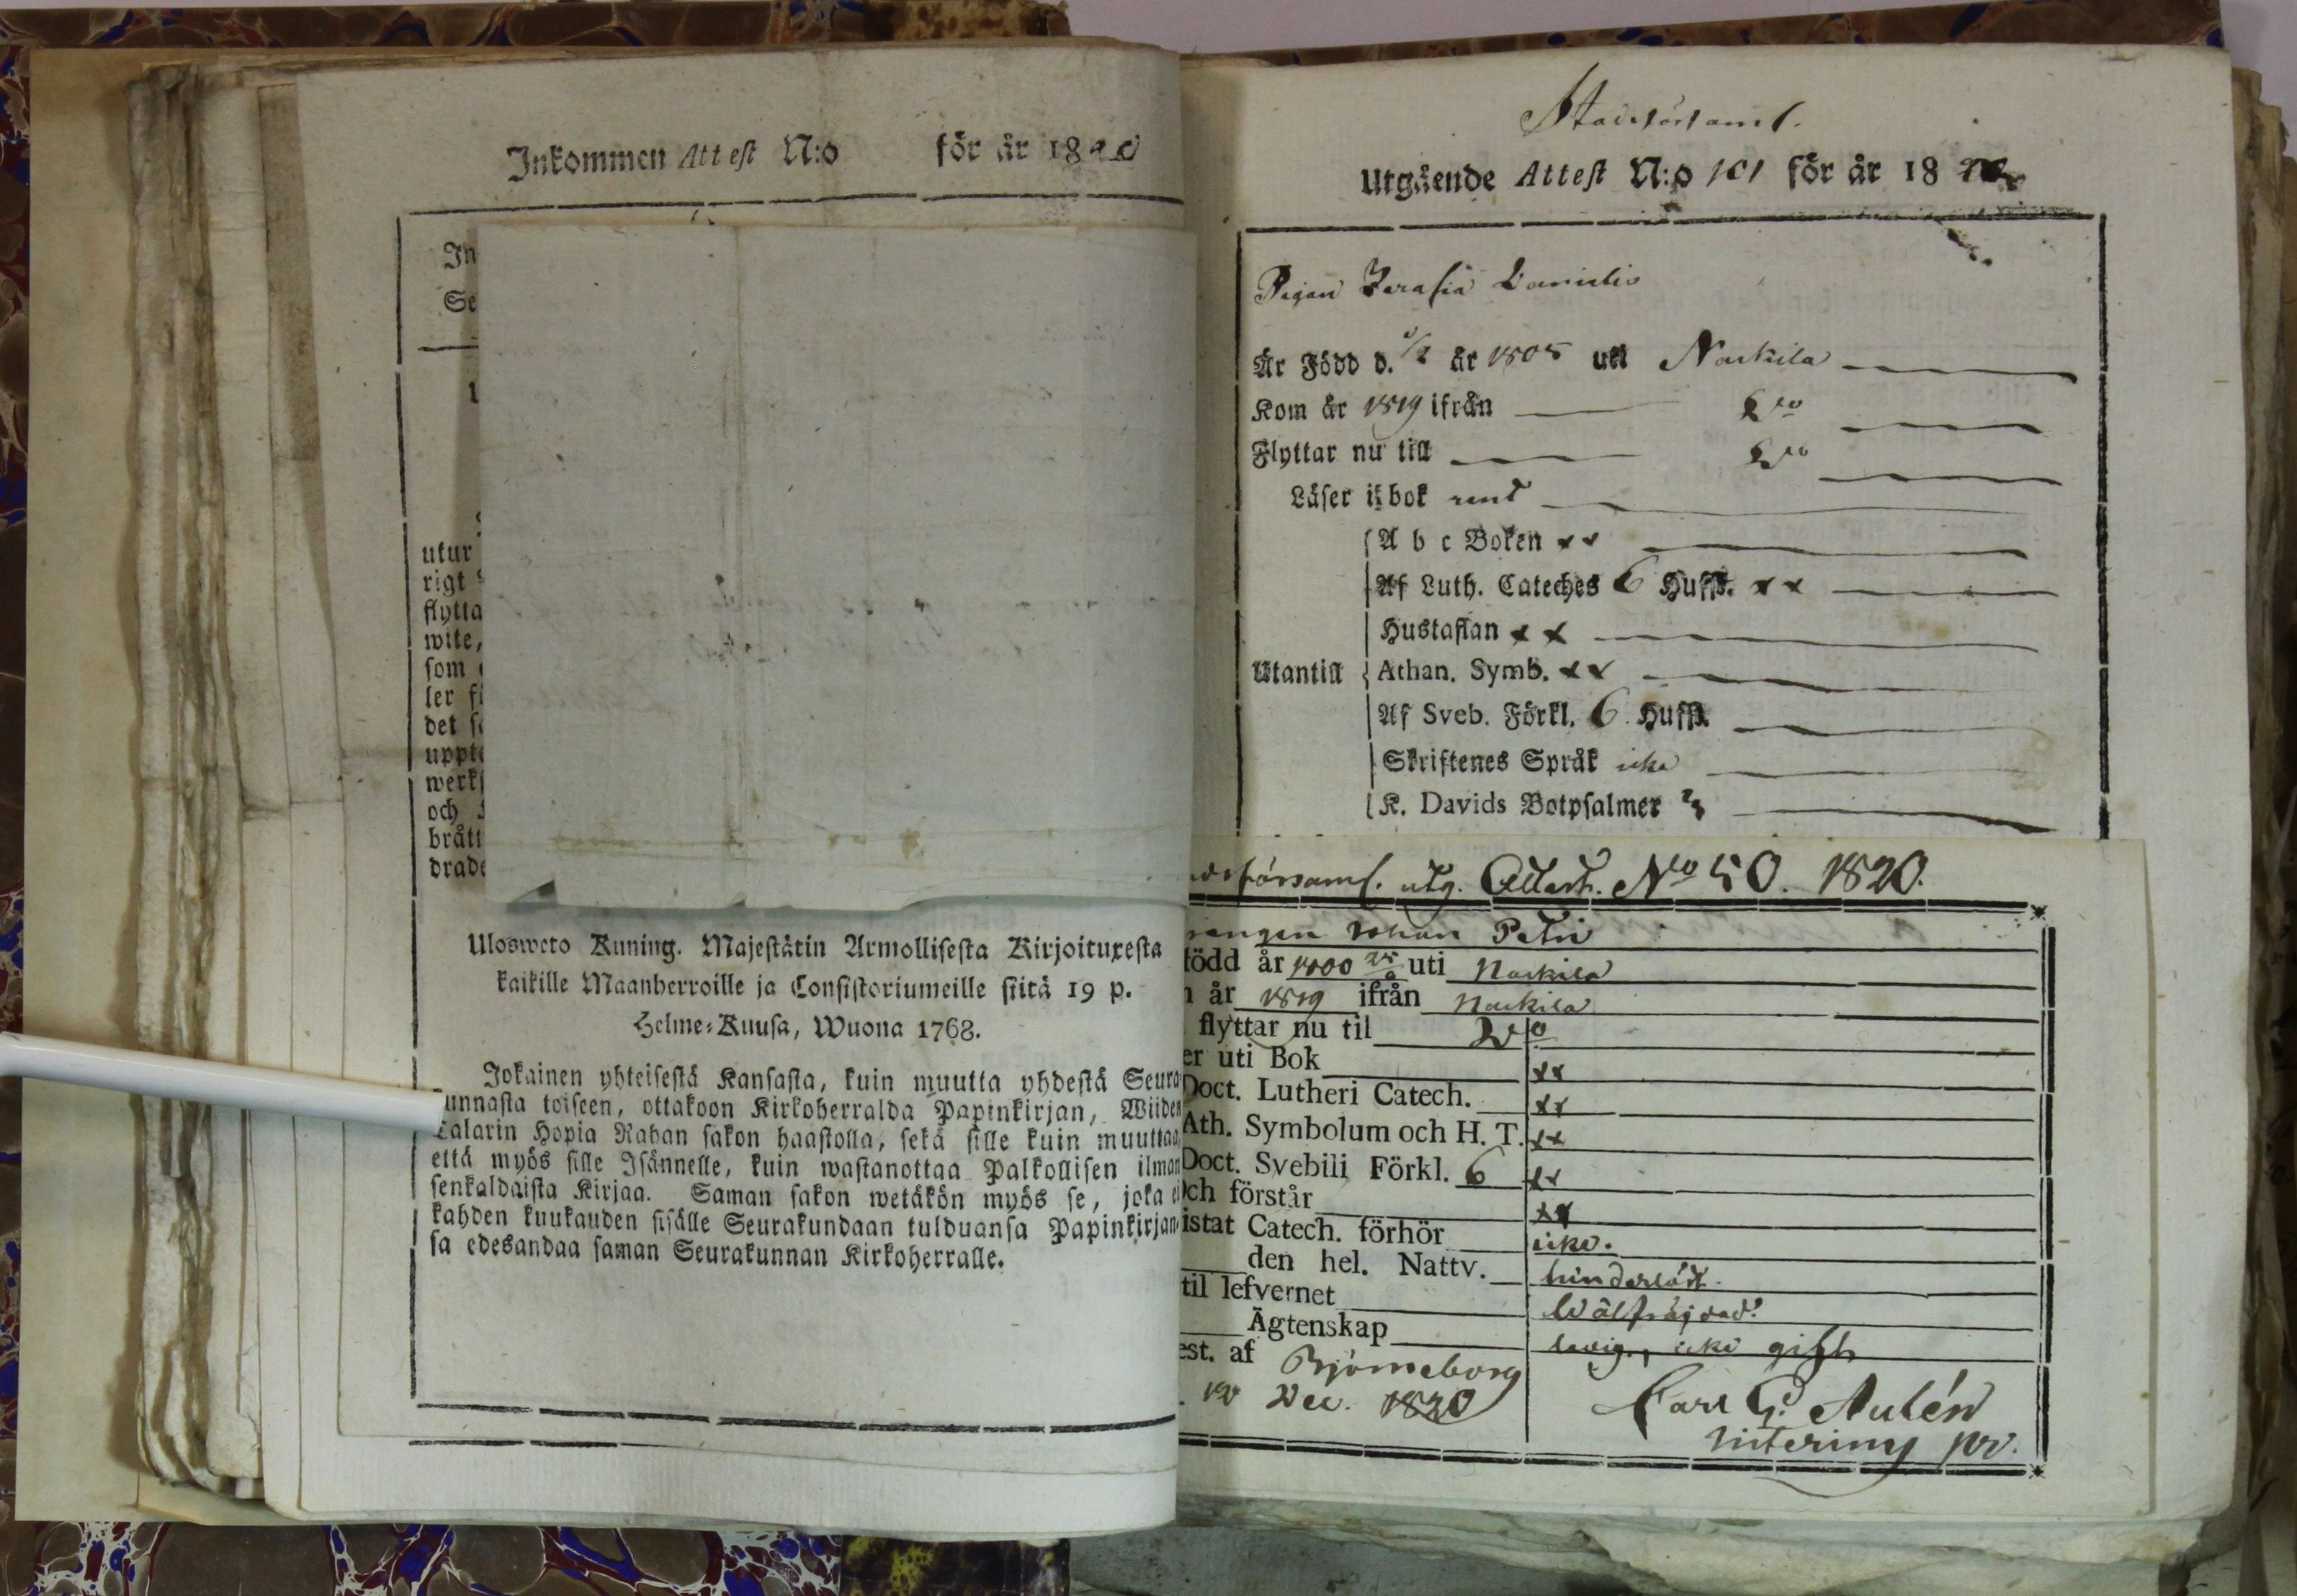 Inkommen Attest N:o för år 1820
In
Se
utur
rigt
flytta
wite,
som
ler
det
uppte
werks
och
brått
drade
Ulosweto Kuning. Majestätin Armollisesta Kirjoituxesta
kaikille Maanherroille ja Consistoriumeille siitä 19 p.
Helme-Kuusa, Wuona 1768.
Jokainen yhteisestä Kansasta, kuin muutta yhdestä Seura
unnasta toiseen, ottakoon Kirkoherralda Papinkirjan, Wiiden
Talarin Hopia Rahan sakon haastolla, sekä sille kuin muuttaa,
että myös sille Isännelle, kuin wastanottaa Palkollisen ilman
senkaldaista Kirjaa. Saman sakon wetäkön myös se, joka ei
kahden kuukauden sisälle Seurakundaan tulduansa Papinkirjan-
sa edesandaa saman Seurakunnan Kirkoherralle.
Stadsförsaml.
Utgående Attest N:o 101 för år 18
Pigan Danielis
Är Född d. år 1805 uti Nackila
Kom år 1819 ifrån Dto
Flyttar nu till Dto
Läser i bok rent
A b c Boken xx
Af Luth. Cateches 6 Hufst. xx
Hustaflan xx
Utantill Athan. Symb. xx
Af Sveb. Förkl. 6 Hufst.
Skriftenes Språk icke
K. Davids Botpsalmer 3
församl. utg. Attest. No 50. 1820.
rengen Johan Petri
född år 1800 uti Nackila
år 1819 ifrån Nackila
flyttar nu til Dto
er uti Bok xx
Doct. Lutheri Catech. xx
Ath. Symbolum och H. T. xx
Doct. Svebili Förkl. 6 xx
Och förstår xx
istat Catech. förhör icke.
den hel. Nattv. hinderlöst.
til lefvernet Wälfräjdad.
Ägtenskap ledig, icke gift
est. af Björneborg
Dec. 1820
Carl G. Aulén